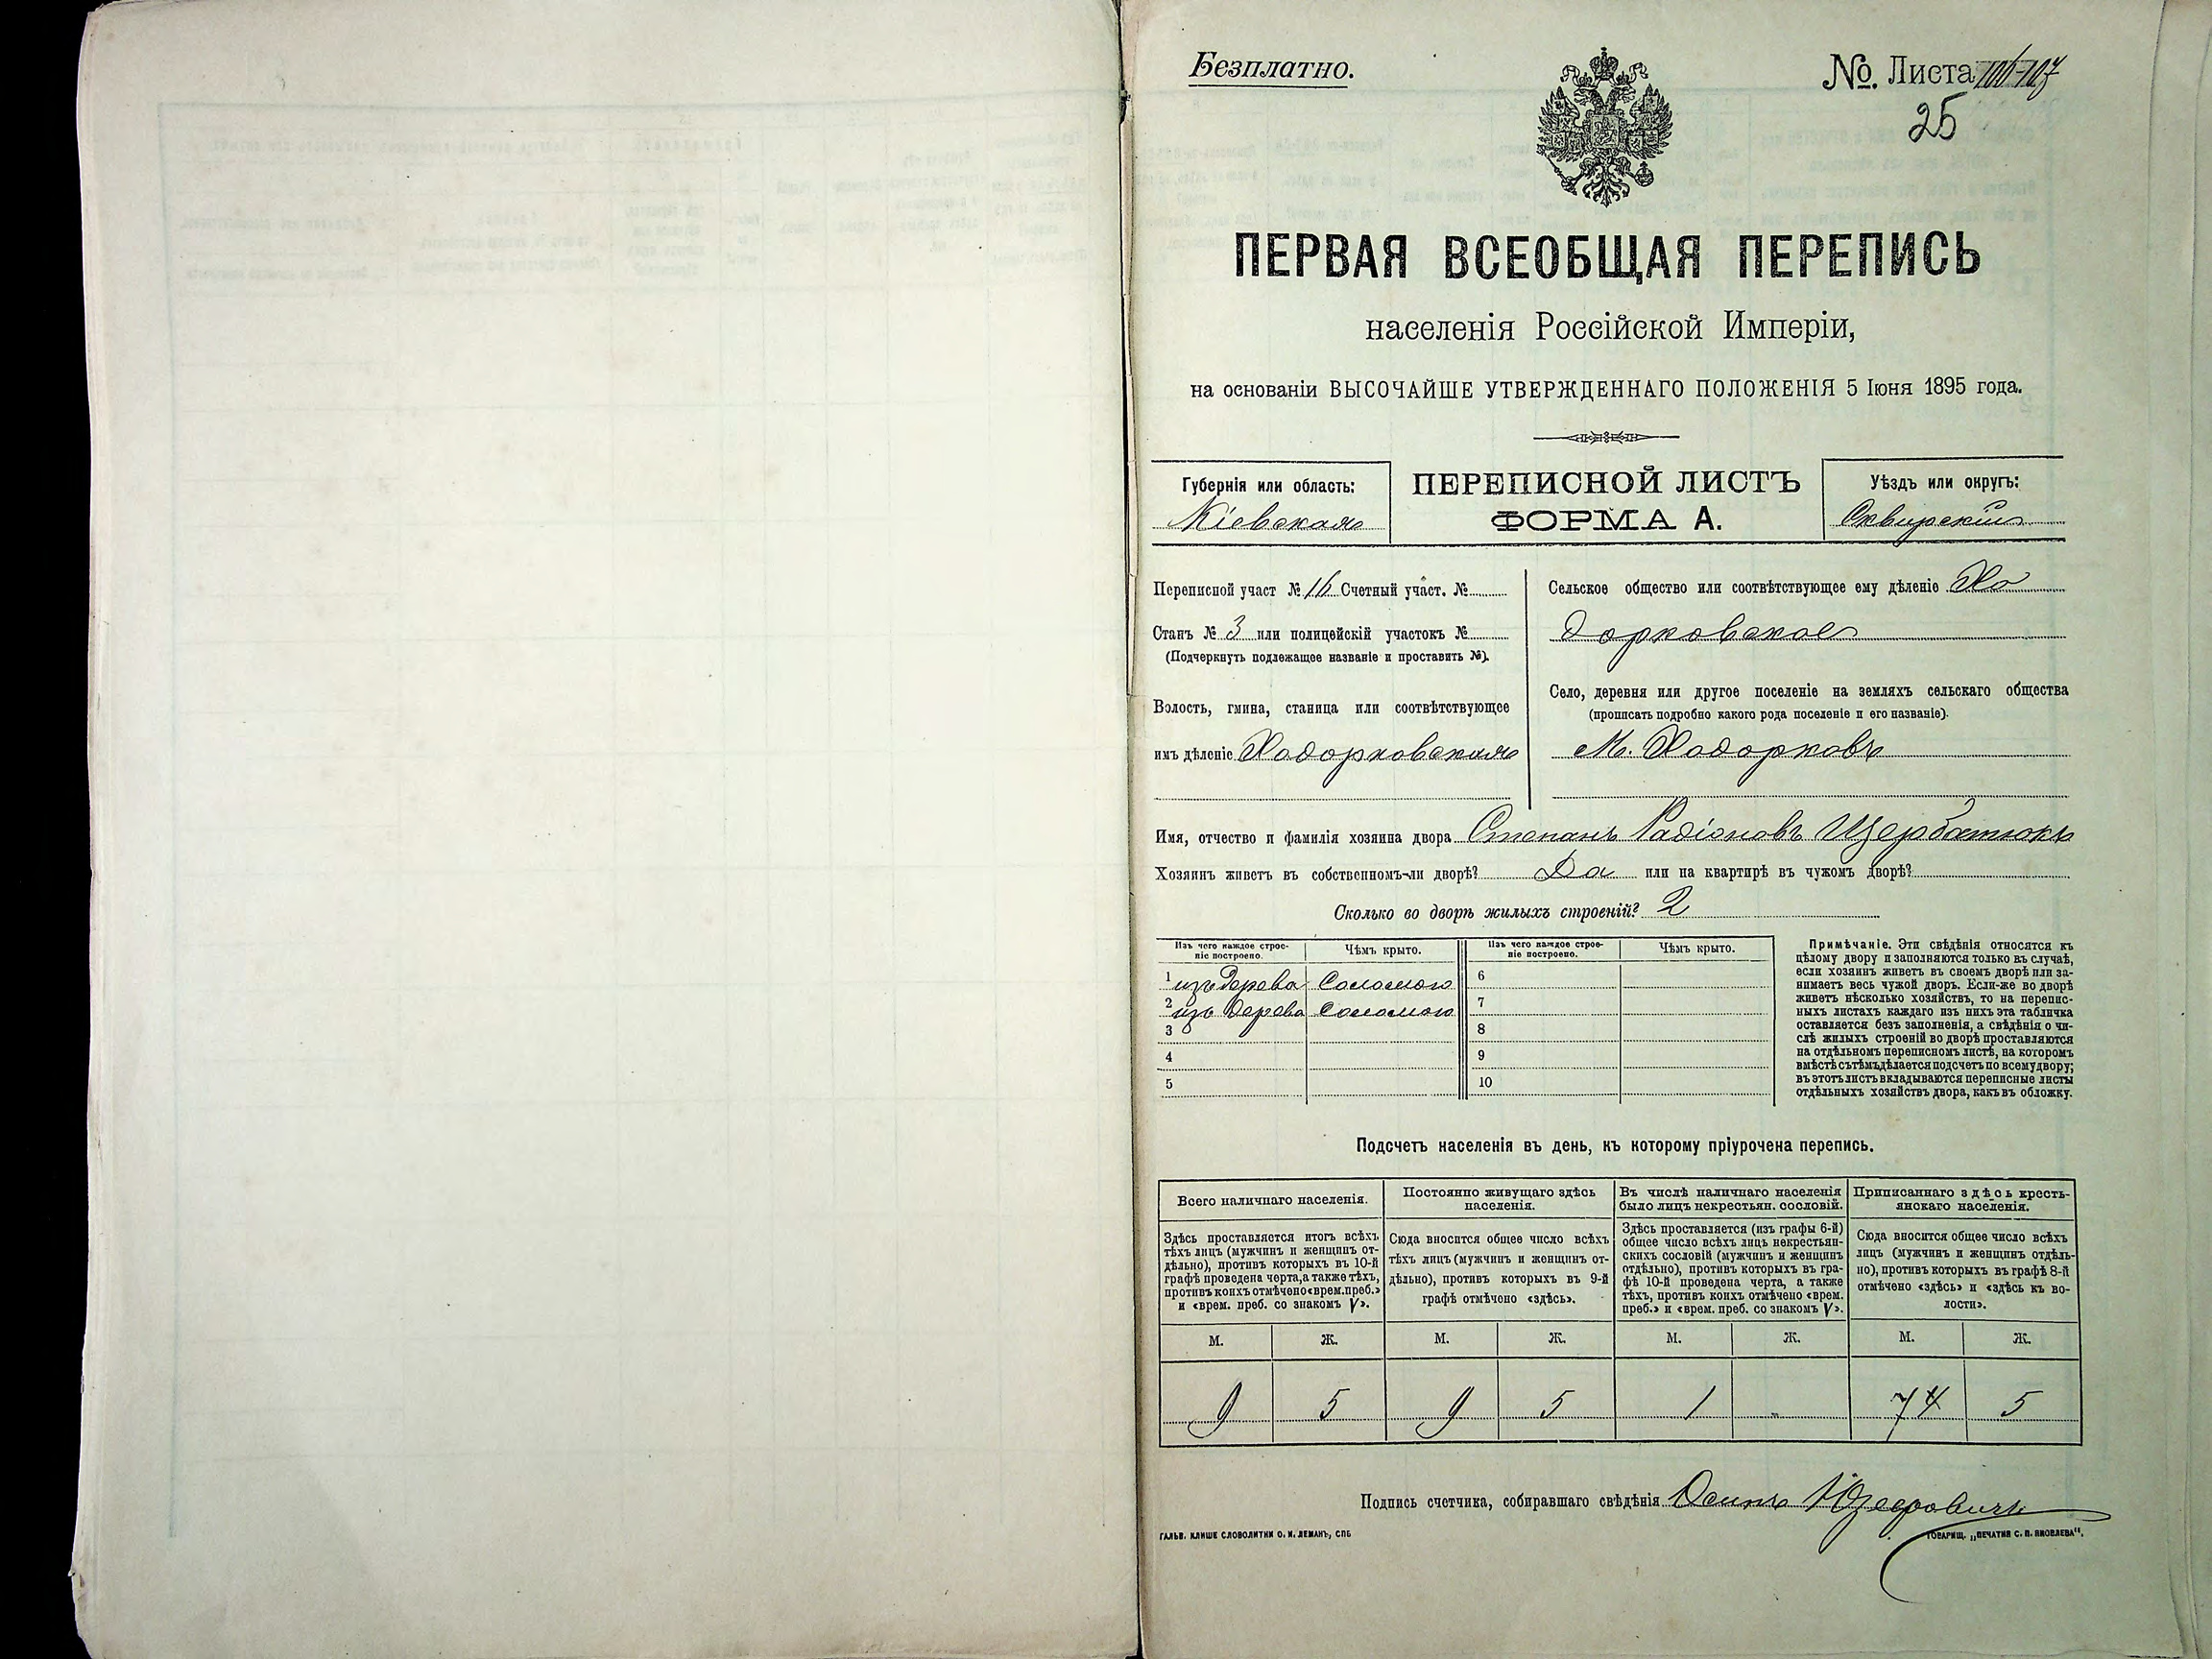 Безплатно.
№. Листа 106-107
25
ПЕРВАЯ ВСЕОБЩАЯ ПЕРЕПИСЬ
населенія Россійской Имперіи,
на основаніи ВЫСОЧАЙШЕ УТВЕРЖДЕННАГО ПОЛОЖЕНІЯ 5 Іюня 1895 года.
Губернія или область:
Кіевская
ПЕРЕПИСНОЙ ЛИСТЪ
ФОРМА А.
Уѣздъ или округъ:
Сквирскій
Переписной участ № 16 Счетный участ. №
Станъ № 3 или полицейскій участокъ №
(Подчеркнуть подлежащее названіе и проставить №).
Волость, гмина, станица или соотвѣтствующее
имъ дѣленіе Ходорковская
Сельское общество или соотвѣтствующее ему дѣленіе Хо
дорковское
Село, деревня или другое поселеніе на земляхъ сельскаго общества
(прописать подробно какого рода поселеніе и его названіе).
М. Ходорковъ
Имя, отчество и фамилія хозяина двора Степанъ Радіоновъ Щербатюкъ
Хозяинъ живетъ въ собственномъ-ли дворѣ? Да или на квартирѣ въ чужомъ дворѣ?
Сколько во дворѣ жилыхъ строеній? 2
Изъ чего каждое строе-
ніе построено.
Чѣмъ крыто.
Изъ чего каждое строе-
ніе построено.
Чѣмъ крыто.
1 изъ Дерева Соломою 6
2 изъ Дерева Соломою 7
3 8
4 9
5 10
Примѣчаніе. Эти свѣдѣнія относятся къ
цѣлому двору и заполняются только въ случаѣ,
если хозяинъ живетъ въ своемъ дворѣ или за-
нимаетъ весь чужой дворъ. Если-же во дворѣ
живетъ нѣсколько хозяйствъ, то на перепис-
ныхъ листахъ каждаго изъ нихъ эта табличка
оставляется безъ заполненія, а свѣдѣнія о чи-
слѣ жилыхъ строеній во дворѣ проставляются
на отдѣльномъ переписномъ листѣ, на которомъ
вмѣстѣ съ тѣмъ дѣлается подсчетъ по всему двору;
въ этотъ листъ вкладываются переписные листы
отдѣльныхъ хозяйствъ двора, какъ въ обложку.
Подсчетъ населенія въ день, къ которому пріурочена перепись.
Всего наличнаго населенія.
Здѣсь проставляется итогъ всѣхъ
тѣхъ лицъ (мужчинъ и женщинъ от-
дѣльно), противъ которыхъ въ 10-й
графѣ проведена черта, а также тѣхъ,
противъ коихъ отмѣчено «врем. преб.»
и «врем. преб. со знакомъ V».
Постоянно живущаго здѣсь
населенія.
Сюда вносится общее число всѣхъ
тѣхъ лицъ (мужчинъ и женщинъ от-
дѣльно), противъ которыхъ въ 9-й
графѣ отмѣчено «здѣсь».
Въ числѣ наличнаго населенія
было лицъ некрестьян. сословій.
Здѣсь проставляется (изъ графы 6-й)
общее число всѣхъ лицъ некрестьян-
скихъ сословій (мужчинъ и женщинъ
отдѣльно), противъ которыхъ въ гра-
фѣ 10-й проведена черта, а также
тѣхъ, противъ коихъ отмѣчено «врем.
преб.» и «врем. преб. со знакомъ V».
Приписаннаго здѣсь кресть-
янскаго населенія.
Сюда вносится общее число всѣхъ
лицъ (мужчинъ и женщинъ отдѣль-
но), противъ которыхъ въ графѣ 8-й
отмѣчено «здѣсь» и «здѣсь къ во-
лости».
М. Ж. М. Ж. М. Ж. М. Ж.
9 5 9 5 1 - 74 5
Подпись счетчика, собиравшаго свѣдѣнія Осипъ
ГАЛЬВ. КЛИШЕ СЛОВОЛИТНИ О. И. ЛЕМАНЪ, СПБ
ТОВАРИЩ. „ПЕЧАТНЯ С. П. ЯКОВЛЕВА".